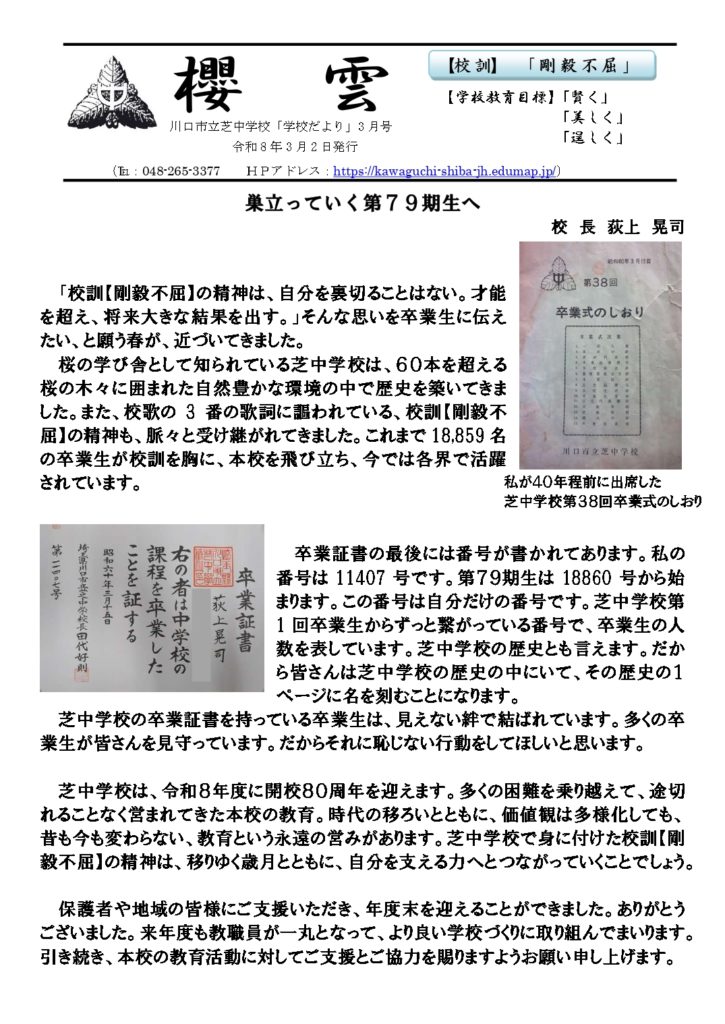 櫻雲
【校訓】 「剛毅不屈」
【学校教育目標】「賢く」
「美しく」
「逞しく」
川口市立芝中学校「学校だより」3月号
令和8年3月2日発行
(℡:048-265-3377 HPアドレス:https://kawaguchi-shiba-jh.edumap.jp/)
巣立っていく第79期生へ
校 長 荻上 晃司
「校訓【剛毅不屈】の精神は、自分を裏切ることはない。才能
を超え、将来大きな結果を出す。」そんな思いを卒業生に伝え
たい、と願う春が、近づいてきました。
桜の学び舎として知られている芝中学校は、60本を超える
桜の木々に囲まれた自然豊かな環境の中で歴史を築いてきま
した。また、校歌の 3 番の歌詞に謳われている、校訓【剛毅不
屈】の精神も、脈々と受け継がれてきました。これまで 18,859 名
の卒業生が校訓を胸に、本校を飛び立ち、今では各界で活躍
されています。
昭和60年3月15日
第38回
卒業式のしおり
川口市立芝中学校
私が40年程前に出席した
芝中学校第38回卒業式のしおり
卒業証書
荻上晃司
右の者は中学校の
課程を卒業した
ことを証する
昭和六十年三月十五日
埼玉県川口市立芝中学校長 田代好則
第一一四〇七号
卒業証書の最後には番号が書かれてあります。私の
番号は 11407 号です。第79期生は 18860 号から始
まります。この番号は自分だけの番号です。芝中学校第
1 回卒業生からずっと繋がっている番号で、卒業生の人
数を表しています。芝中学校の歴史とも言えます。だか
ら皆さんは芝中学校の歴史の中にいて、その歴史の1
ページに名を刻むことになります。
芝中学校の卒業証書を持っている卒業生は、見えない絆で結ばれています。多くの卒
業生が皆さんを見守っています。だからそれに恥じない行動をしてほしいと思います。
芝中学校は、令和8年度に開校80周年を迎えます。多くの困難を乗り越えて、途切
れることなく営まれてきた本校の教育。時代の移ろいとともに、価値観は多様化しても、
昔も今も変わらない、教育という永遠の営みがあります。芝中学校で身に付けた校訓【剛
毅不屈】の精神は、移りゆく歳月とともに、自分を支える力へとつながっていくことでしょう。
保護者や地域の皆様にご支援いただき、年度末を迎えることができました。ありがとう
ございました。来年度も教職員が一丸となって、より良い学校づくりに取り組んでまいります。
引き続き、本校の教育活動に対してご支援とご協力を賜りますようお願い申し上げます。